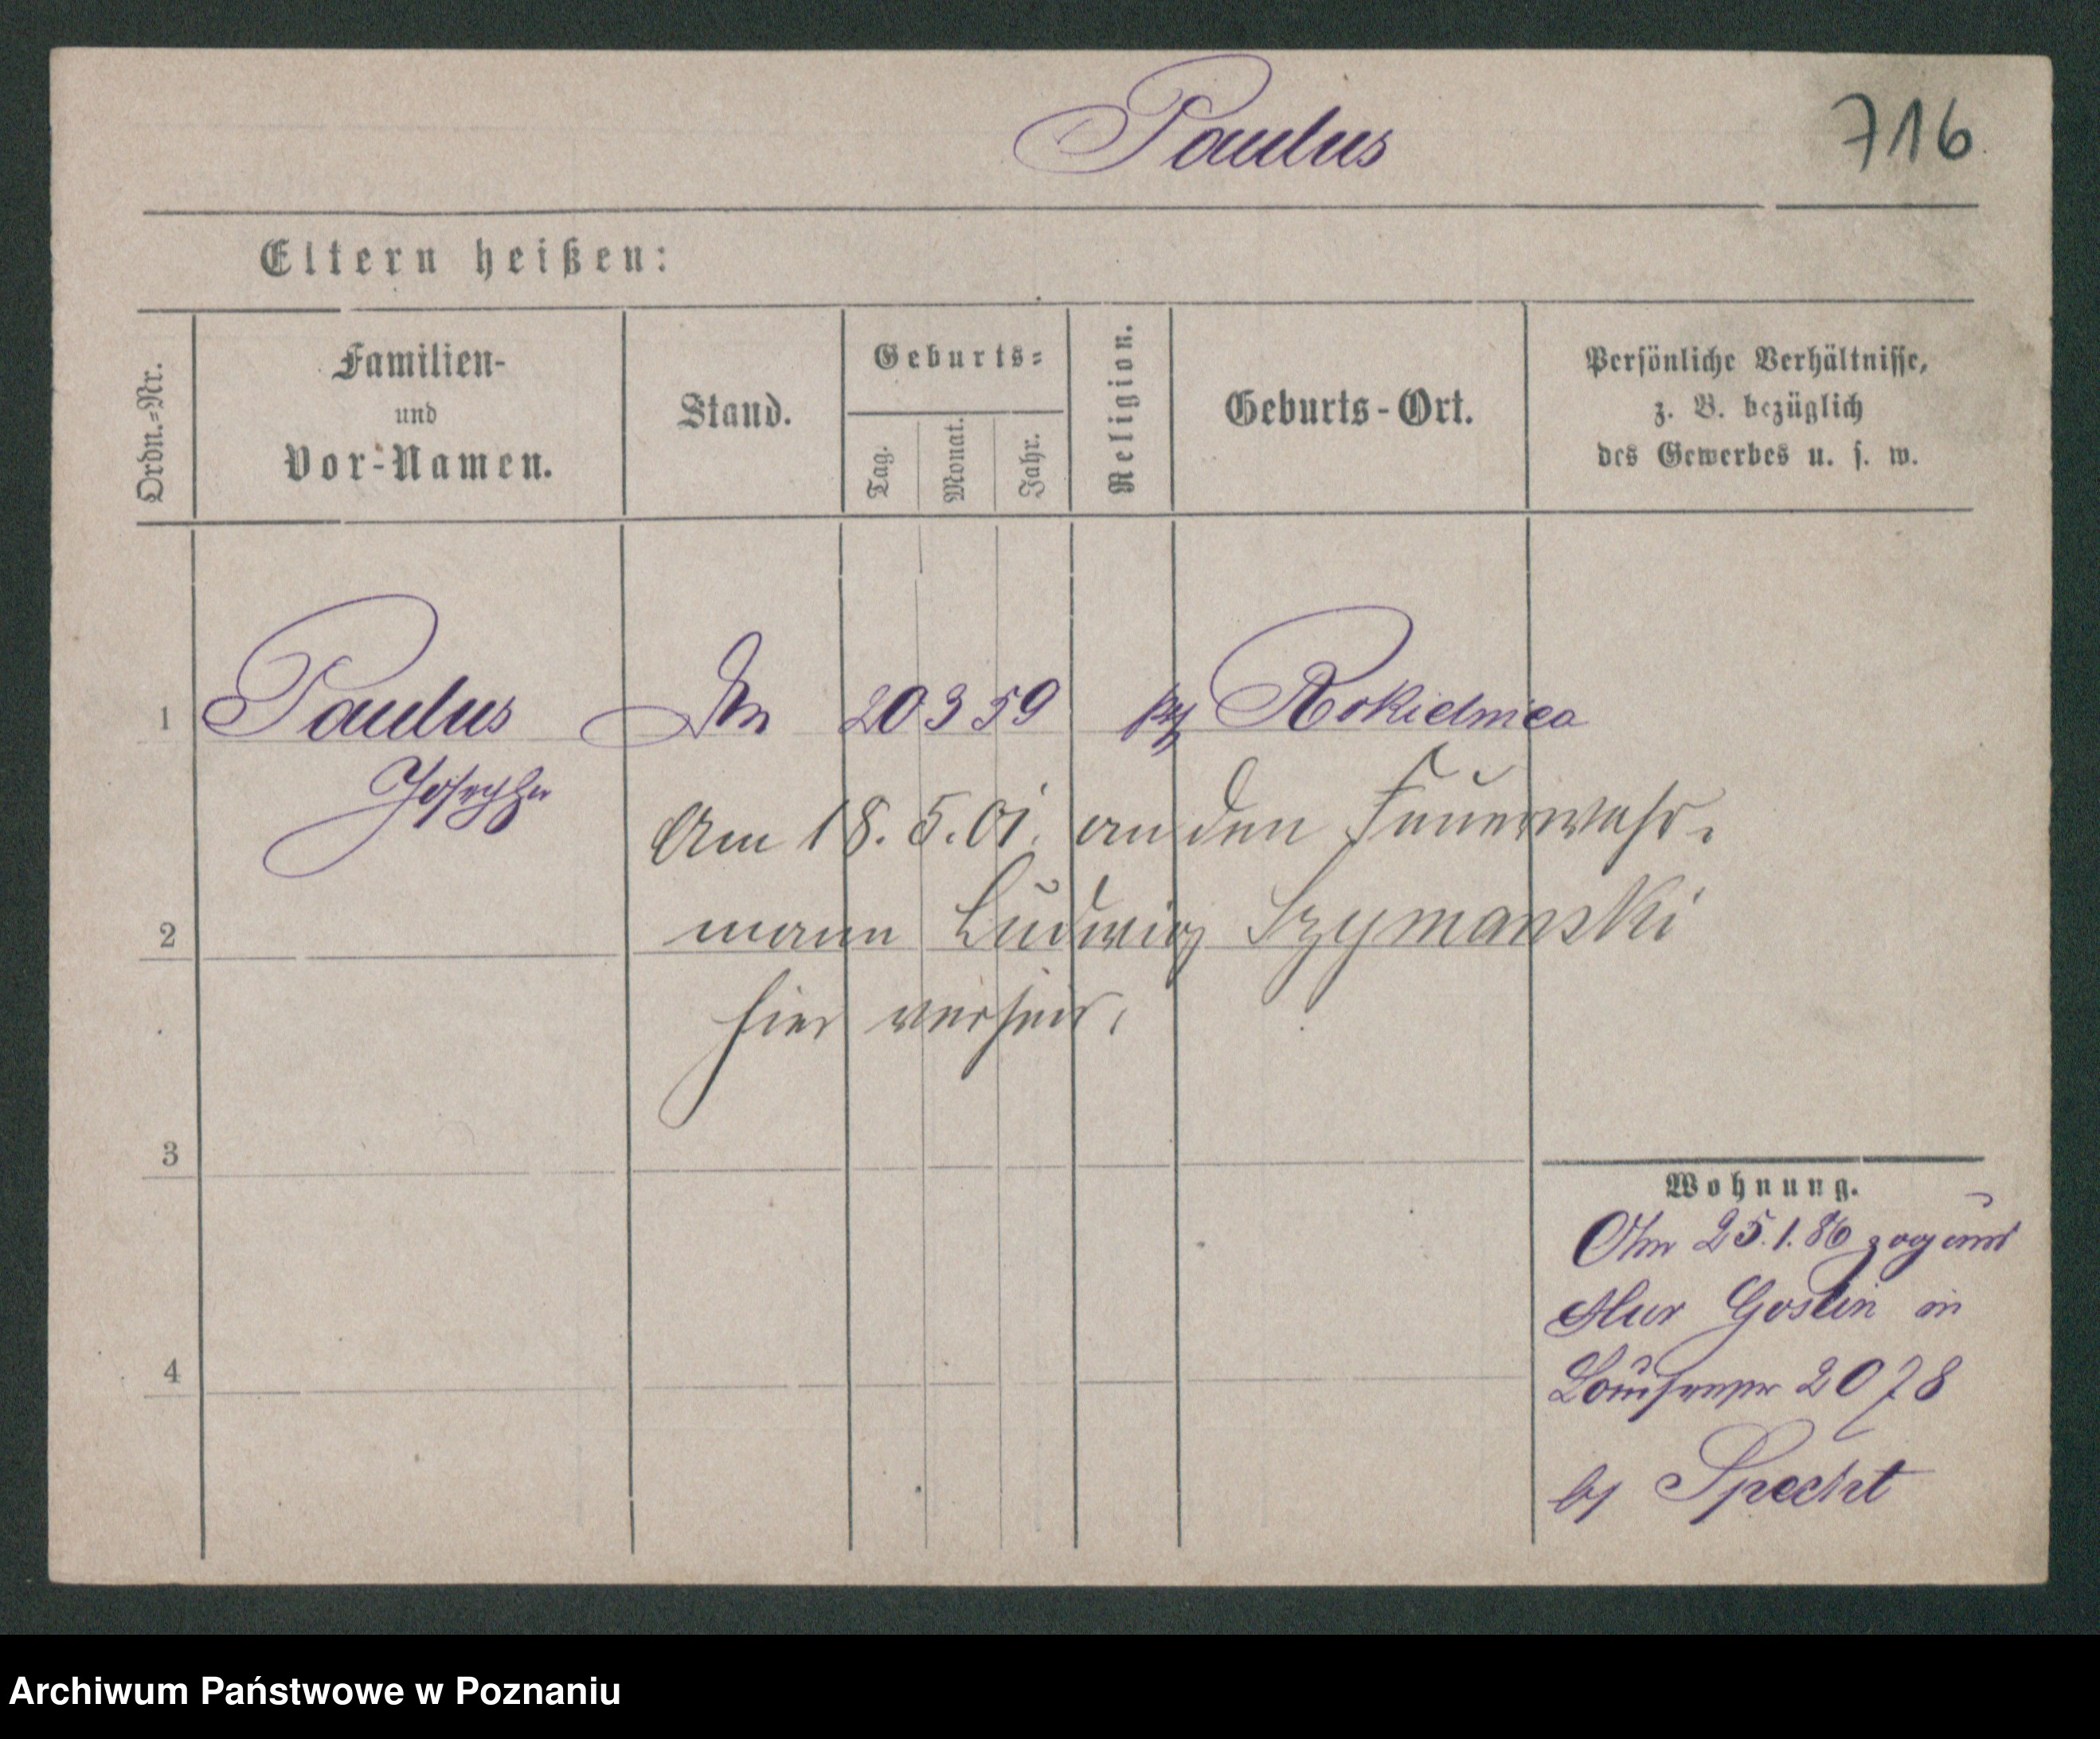 Paulus
716
Eltern heißen:
Ordn.=Nr.
Familien-
und
Vor-Namen.
Stand.
Geburts=
Tag.
Monat.
Jahr.
Religion.
Geburts-Ort.
Persönliche Verhältnisse,
z. B. bezüglich
des Gewerbes u. s. w.
1 Paulus 20 3 59 Rokidnica
Josepha
Am 18. 5. 01. an den Feuerwehr-
2 mann Ludwig Szymanski
hier verheir.
3
Wohnung.
Am 25.1.86 zog aus
Mur Goslin in
4 2078
by Specht
Archiwum Państwowe w Poznaniu